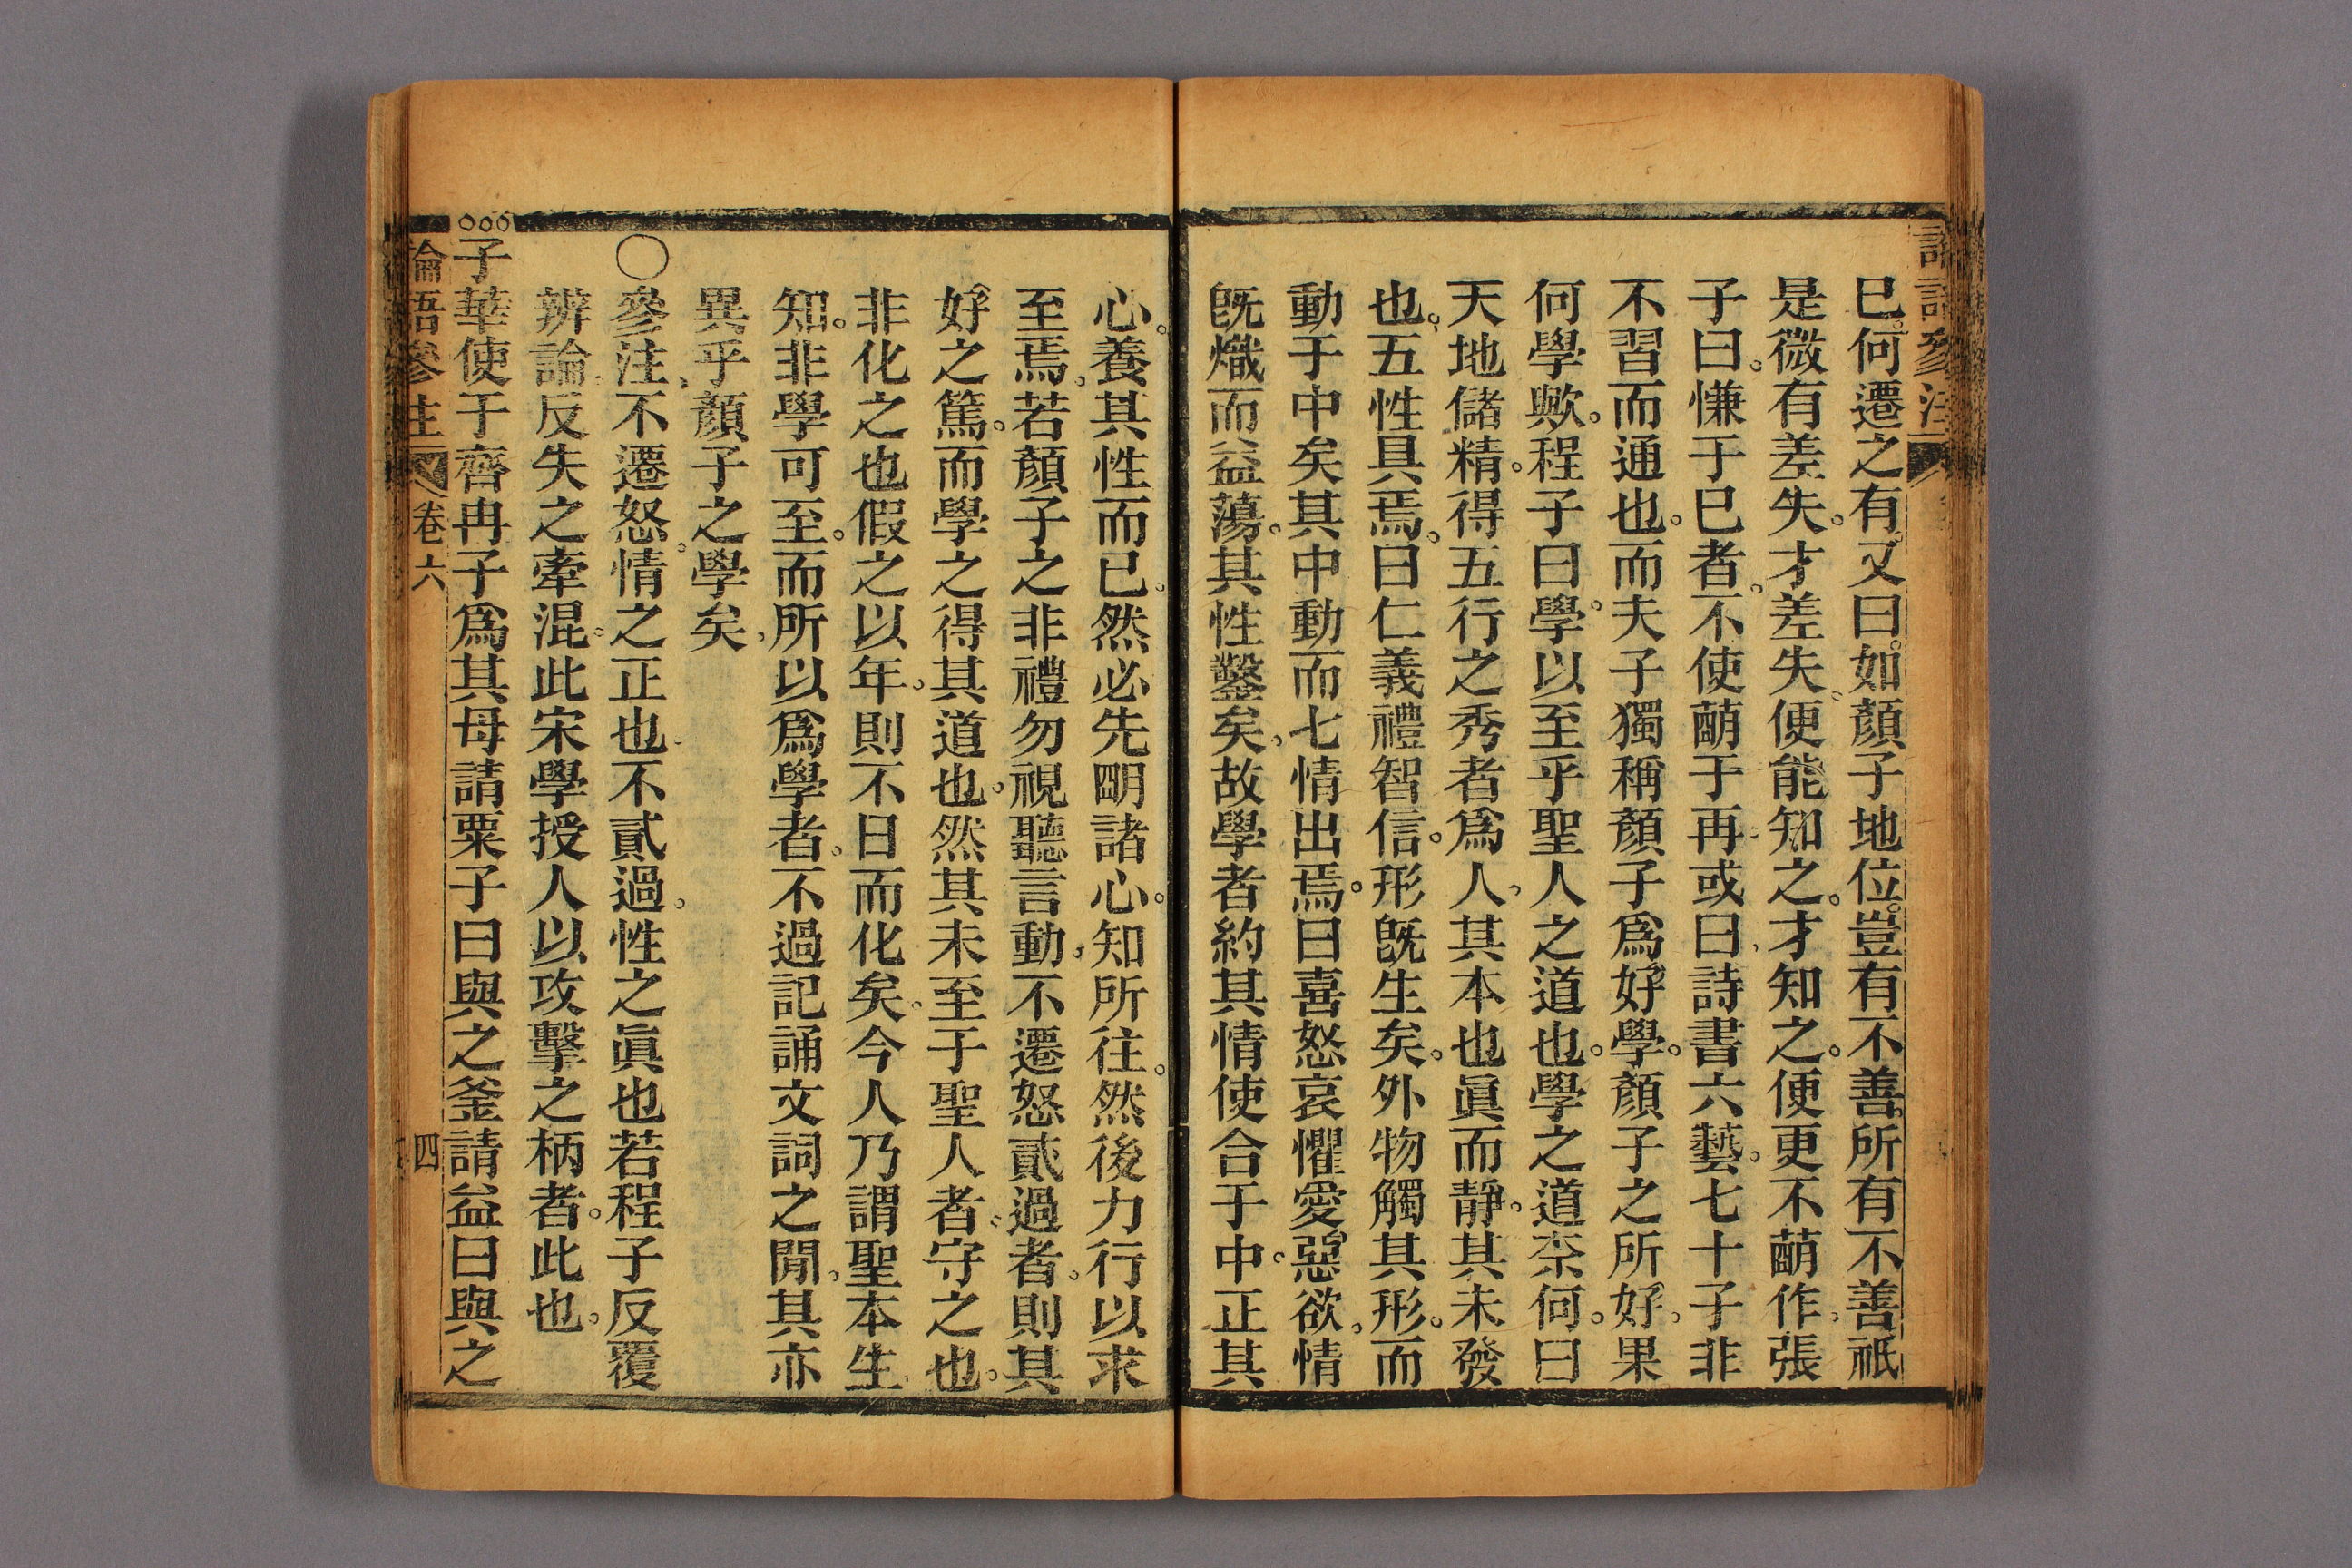 論語參注
已何遷之有又曰如顏子地位豈有不善所有不善祇
是微有差失才差失便能知之才知之便更不萌作張
子曰慊于已者不使萌于再或曰詩書六藝七十子非
不習而通也而夫子獨稱顏子爲好學顏子之所好果
何學歟程子曰學以至乎聖人之道也學之道柰何曰
天地儲精得五行之秀者爲人其本也眞而靜其未發
也五性具焉曰仁義禮智信形旣生矣外物觸其形而
動于中矣其中動而七情出焉曰喜怒哀懼愛惡欲情
旣熾而益蕩其性鑿矣故學者約其情使合于中正其
心養其性而已然必先明諸心知所往然後力行以求
至焉若顏子之非禮勿視聽言動不遷怒貳過者則其
好之篤而學之得其道也然其未至于聖人者守之也
非化之也假之以年則不日而化矣今人乃謂聖本生
知非學可至而所以爲學者不過記誦文詞之閒其亦
異乎顏子之學矣
〇參注不遷怒情之正也不貳過性之眞也若程子反覆
辨論反失之牽混此宋學授人以攻擊之柄者此也
子華使于齊冉子爲其母請粟子曰與之釜請益曰與之
論語參注 卷六 四